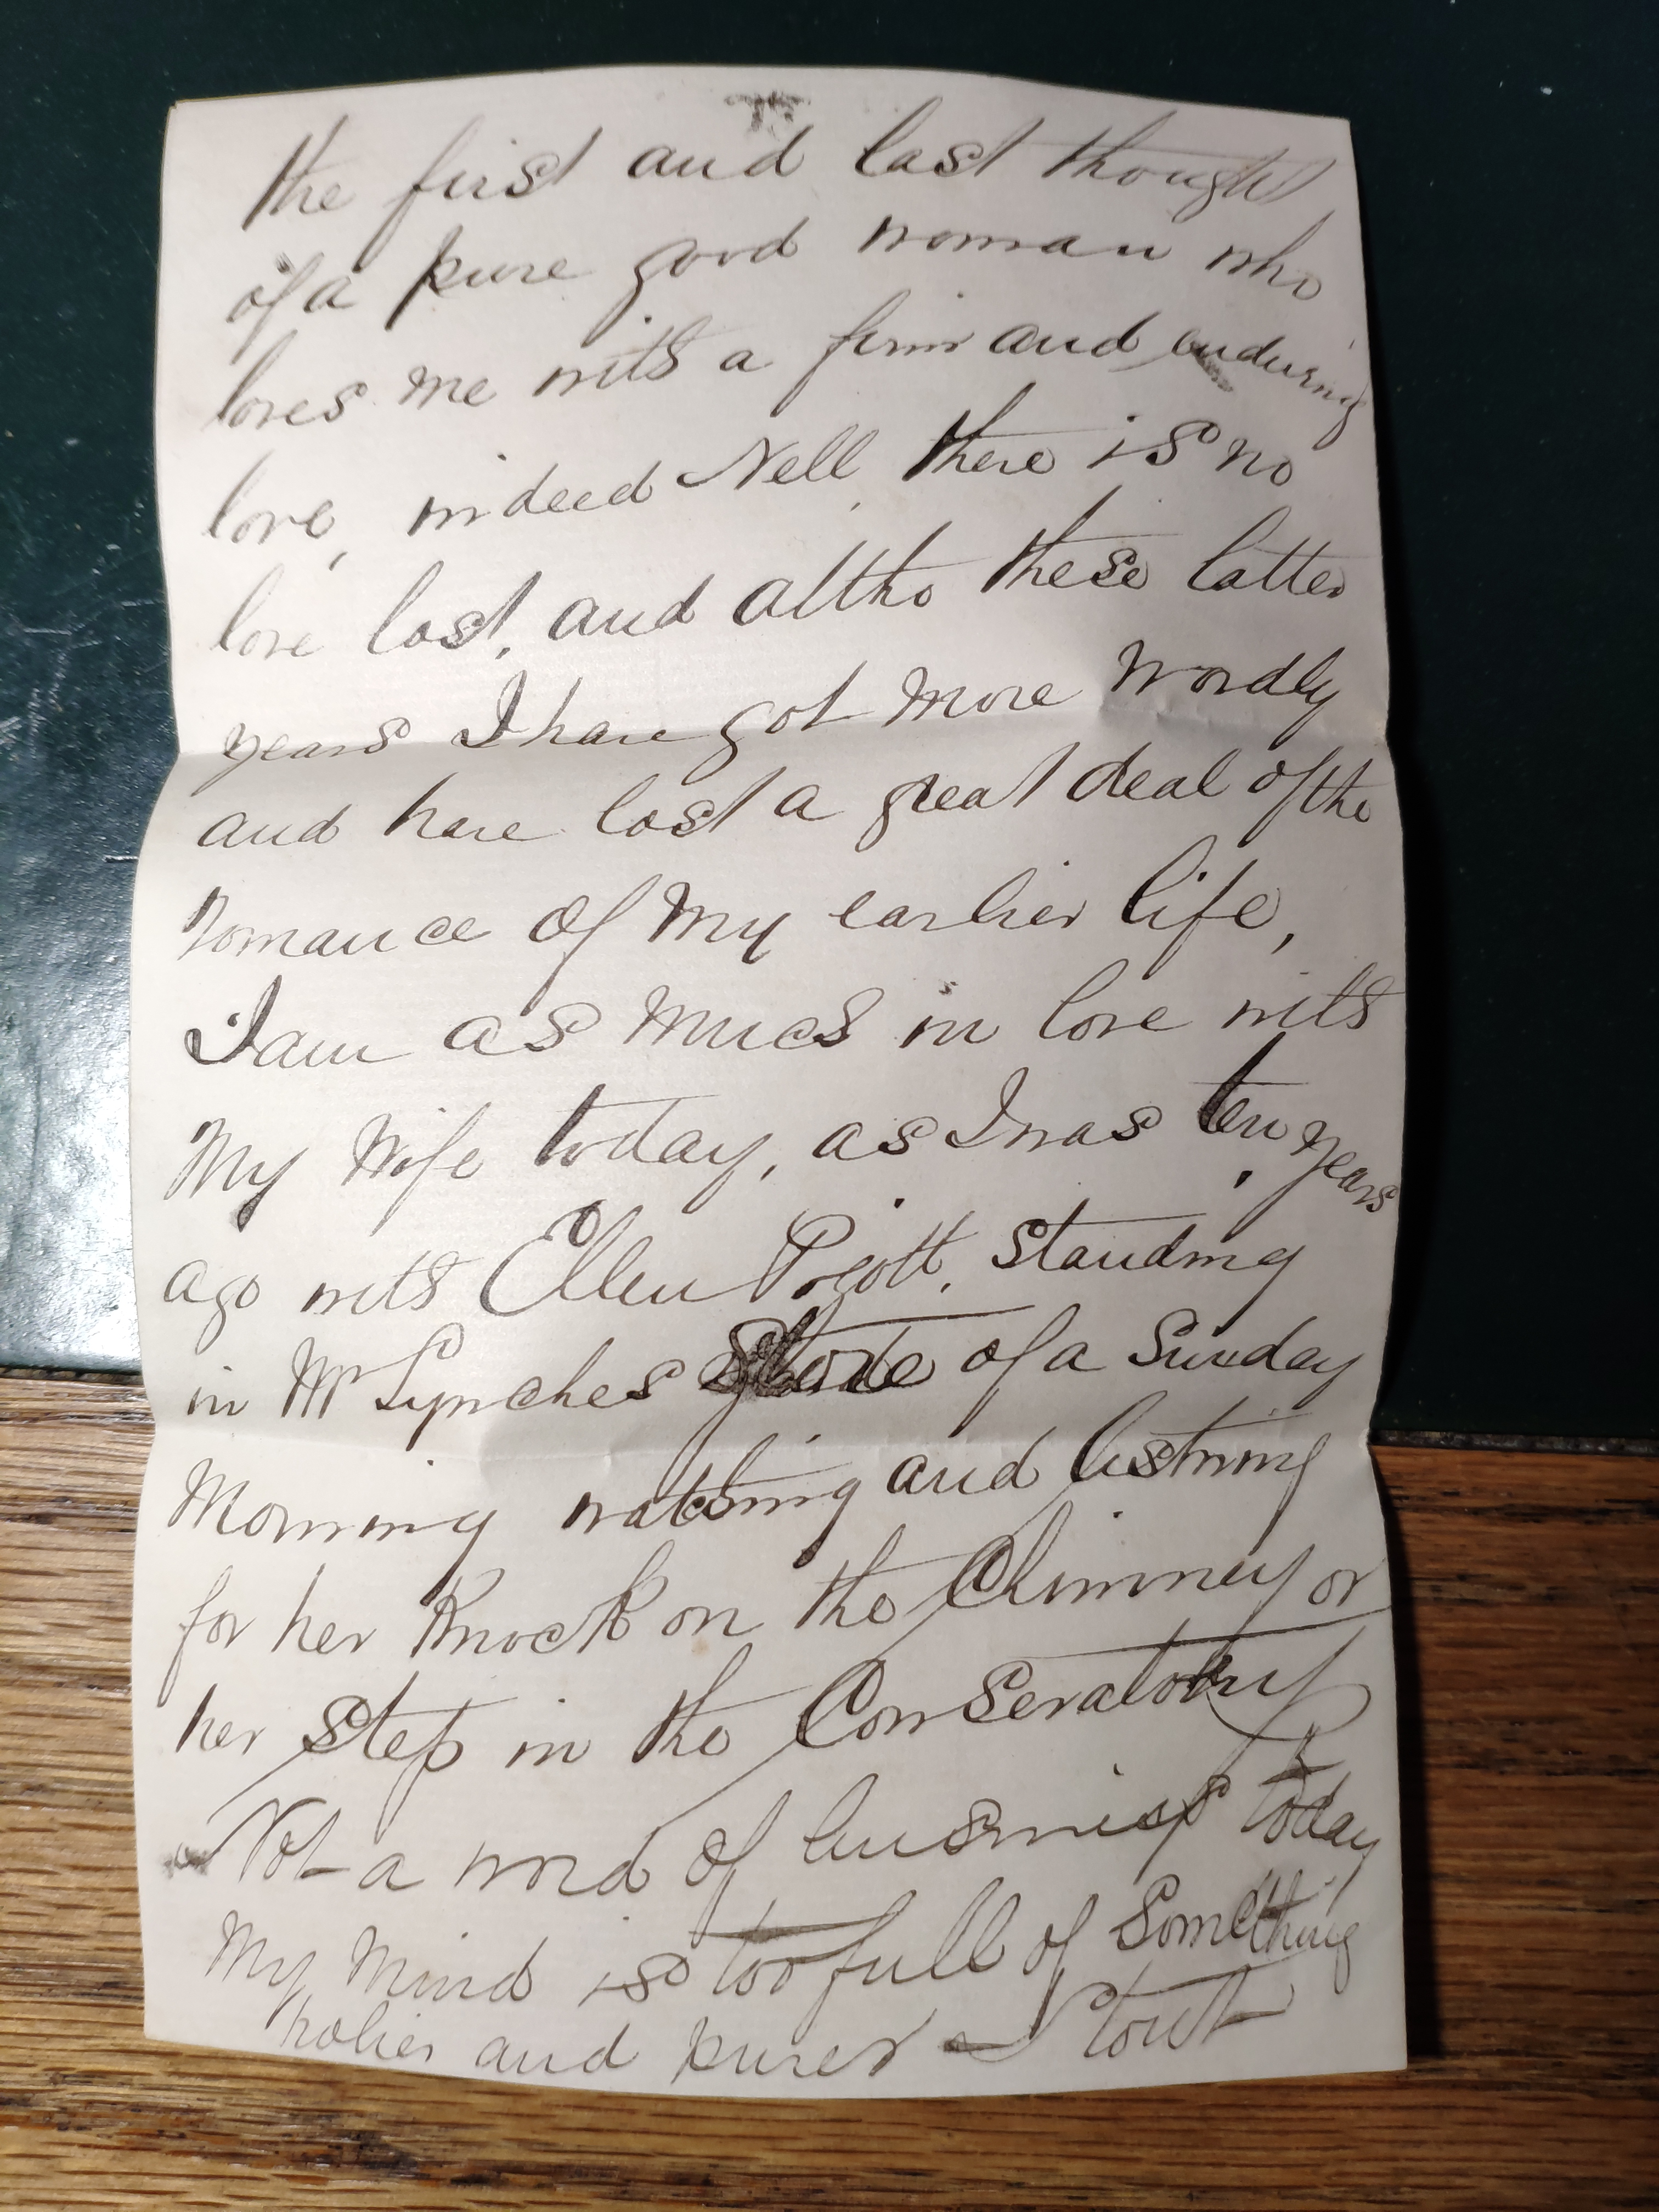 the first and last thought
of a pure good woman who
loves me with a firm and enduring
love, indeed Nell there is no
love lost, and altho these latter
years I have got more wordly
and have lost a great deal of the
romance of my earlier life,
I am as much in love with
My Wife today, as I was ten years
ago with Ellen Pigott, Standing
in Mr Lynches Store of a Sunday
Morning watching and listning
for her Knock on the Chimney or
her Step in the Conservatory
Not a word of business today
My Mind is too full of Something
holier and purer